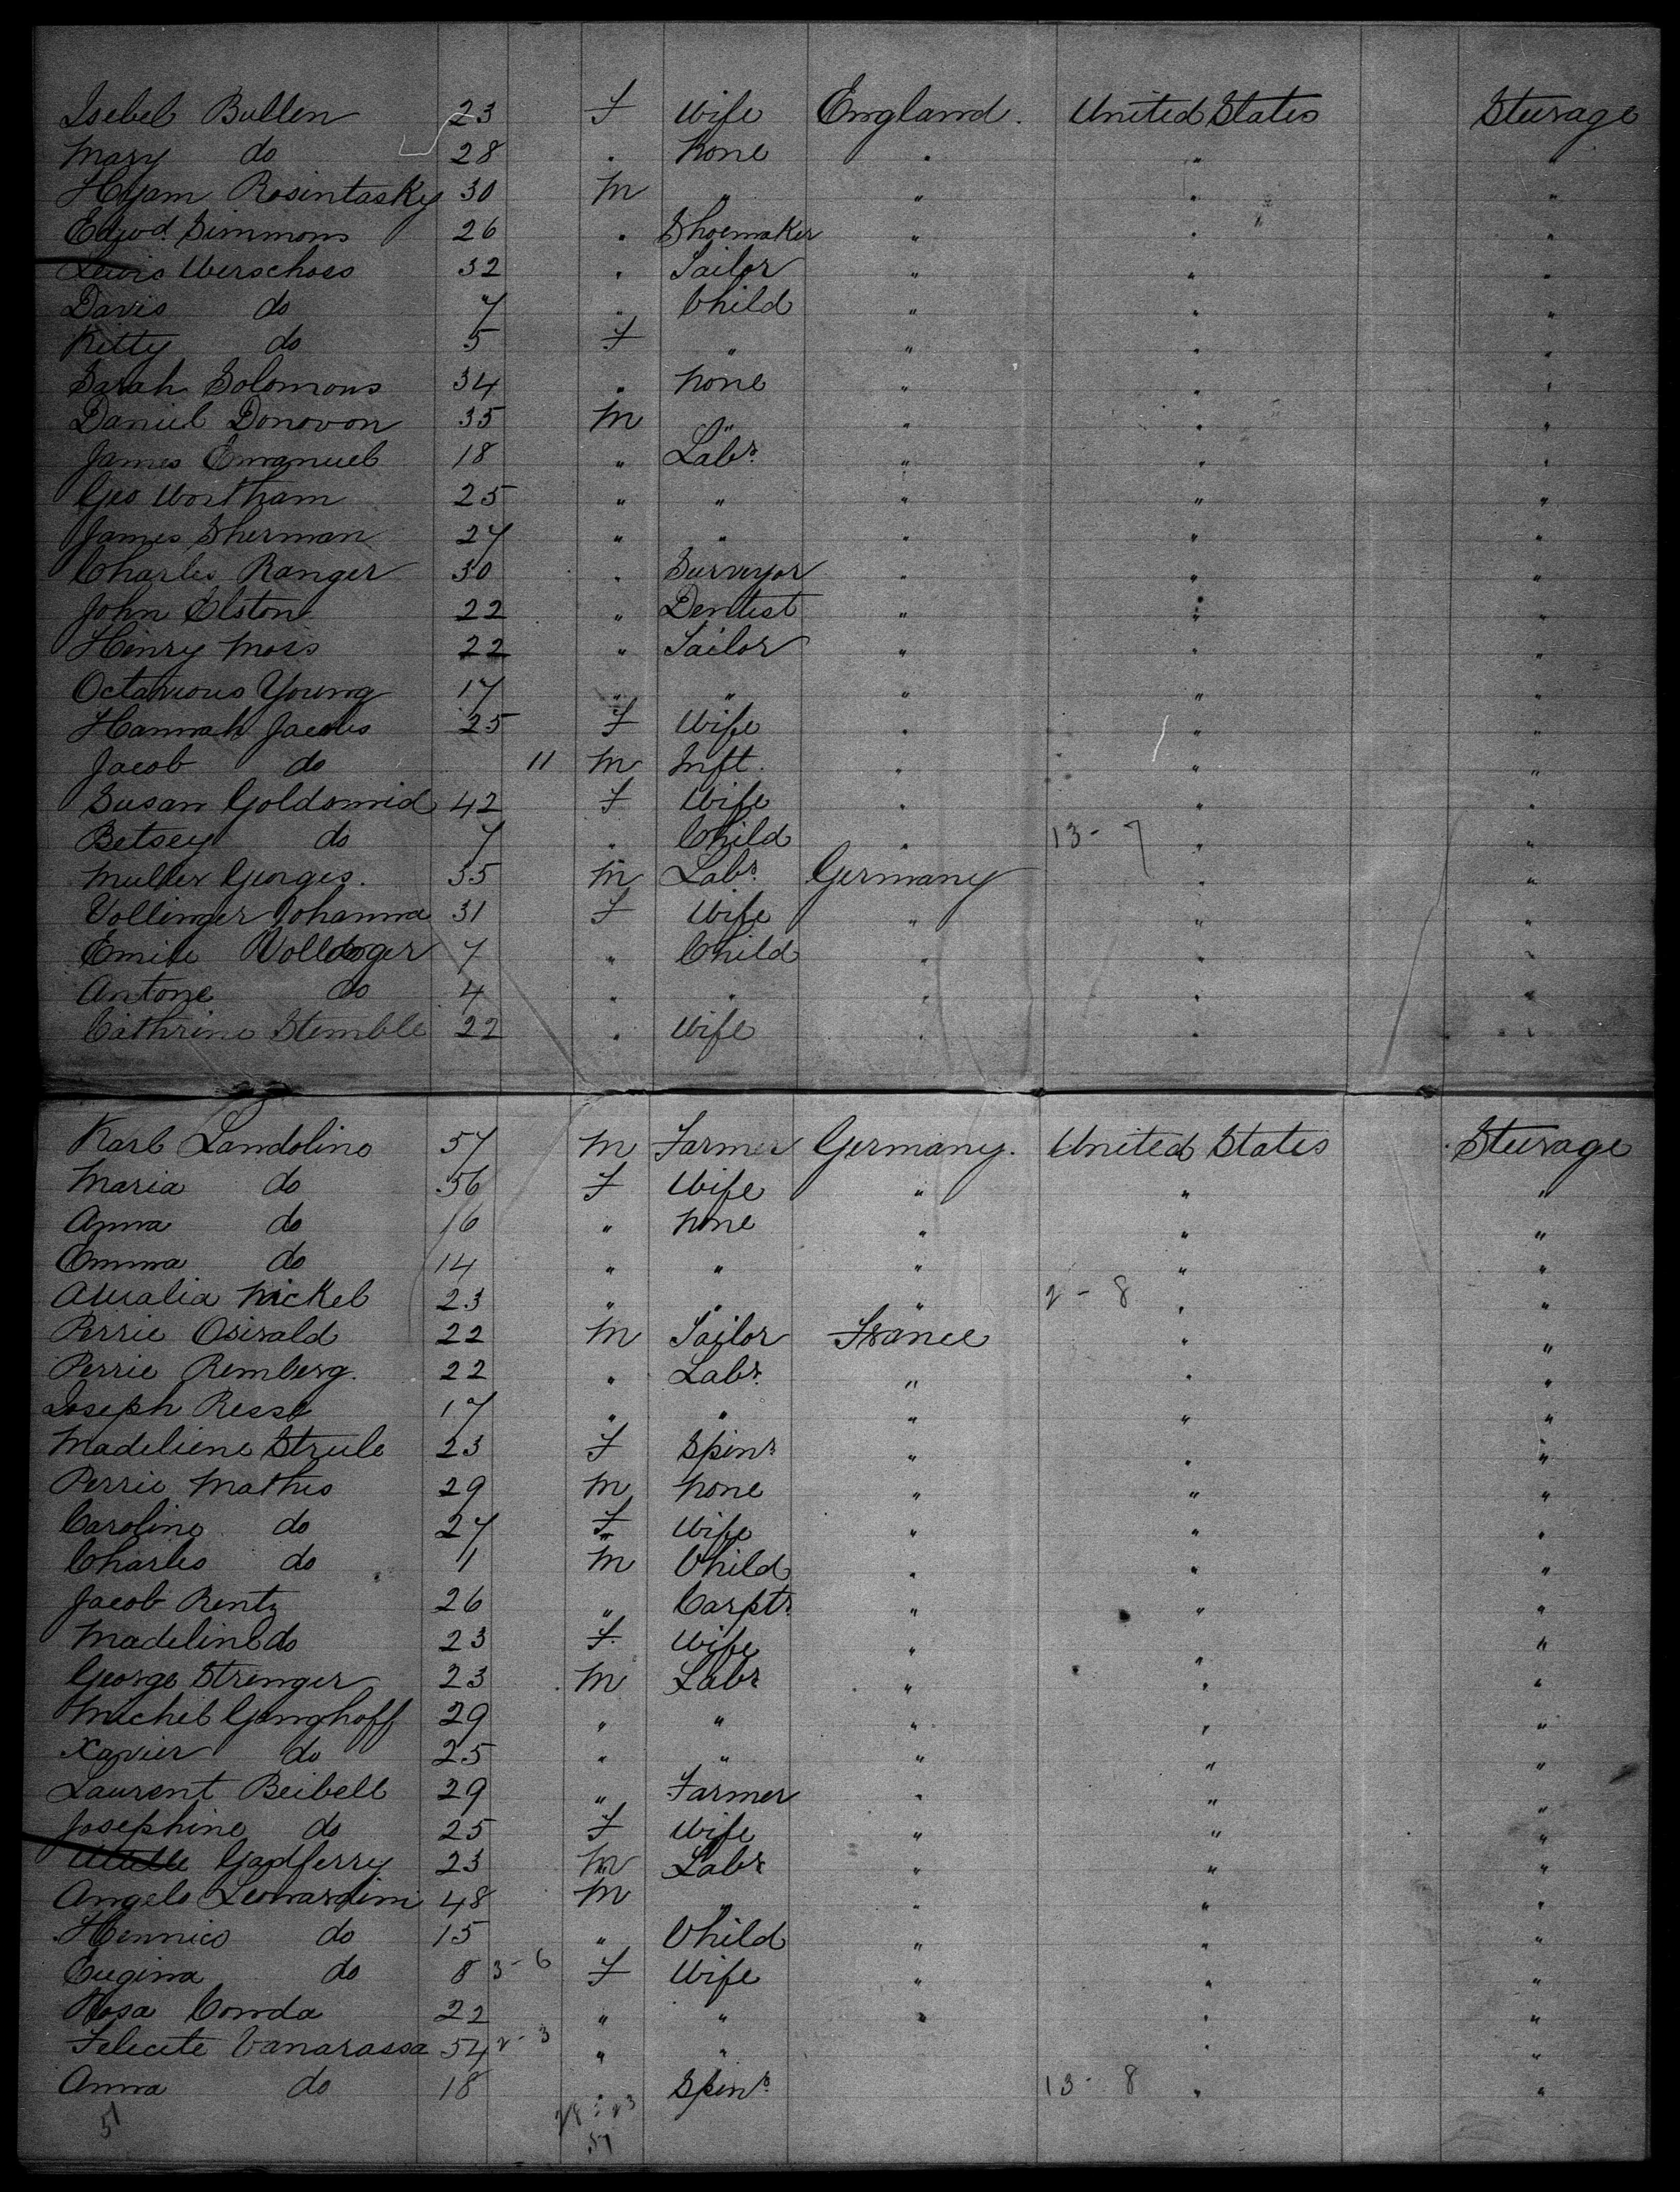 Isebel Bullen 23 F Wife England. United States Steerage
Mary do 28 " None " " "
Hyam Rosintasky 30 M " " " "
Edwd. Simmons 26 " Shoemaker " " "
Lewis Werschoss 32 " Tailor " " "
Davis do 7 " Child " " "
Kitty do 5 F " " " "
Sarah Solomons 34 " None " " "
Daniel Donovon 35 M " " " "
James Emanuel 18 " Labr. " " "
Geo Wortham 25 " " " " "
James Sherman 27 " " " " "
Charles Ranger 30 " Surveyor " " "
John Elston 22 " Dentist " " "
Henry Moss 22 " Tailor " " "
Octavious Young 17 " " " " "
Hannah Jacobs 25 F Wife " " "
Jacob do 11 M Inft. " " "
Susan Goldsmid 42 F Wife " " "
Betsey do 7 " Child " 13-7 " "
Muller Georges. 35 M Labr. Germany " "
Vollinger Johanna 31 F Wife " " "
Emile 7 " Child " " "
Antone do 4 " " " " "
Cathrine Stemble 22 " Wife " " "
Karl Landoline 57 M Farmer Germany. United States Steerage
Maria do 56 F Wife " " "
Anna do 16 " None " " "
Emma do 14 " " " " "
Nickel 23 " " " 2-8 " "
Perrie Osirald 22 M Tailor France " "
Perrie Remberg. 22 " Labr. " " "
Joseph Resse 17 " " " " "
Madeliene Strule 23 F Spinr " " "
Perrie Mathis 29 M None " " "
Caroline do 27 F Wife " " "
Charles do 11 M Child " " "
Jacob Rentz 26 " Carptr. " " "
Madeline do 23 F. Wife " " "
George Strenger 23 M Labr " " "
Michel Genghoff 29 " " " " "
Xavier do 25 " " " " "
Laurent Beibell 29 " Farmer " " "
Josephine do 25 F Wife " " "
Gadferry 23 M Labr " " "
Angelo Leonardini 48 M " " " "
Hennico do 15 " Child " " "
Eugina do 8 3-6 F Wife " " "
Rosa Conda 22 " " " " "
Felecite Vanarassa 54 2-3 " " " "
Anna do 18 " Spinr. 13-8 " "
51
51